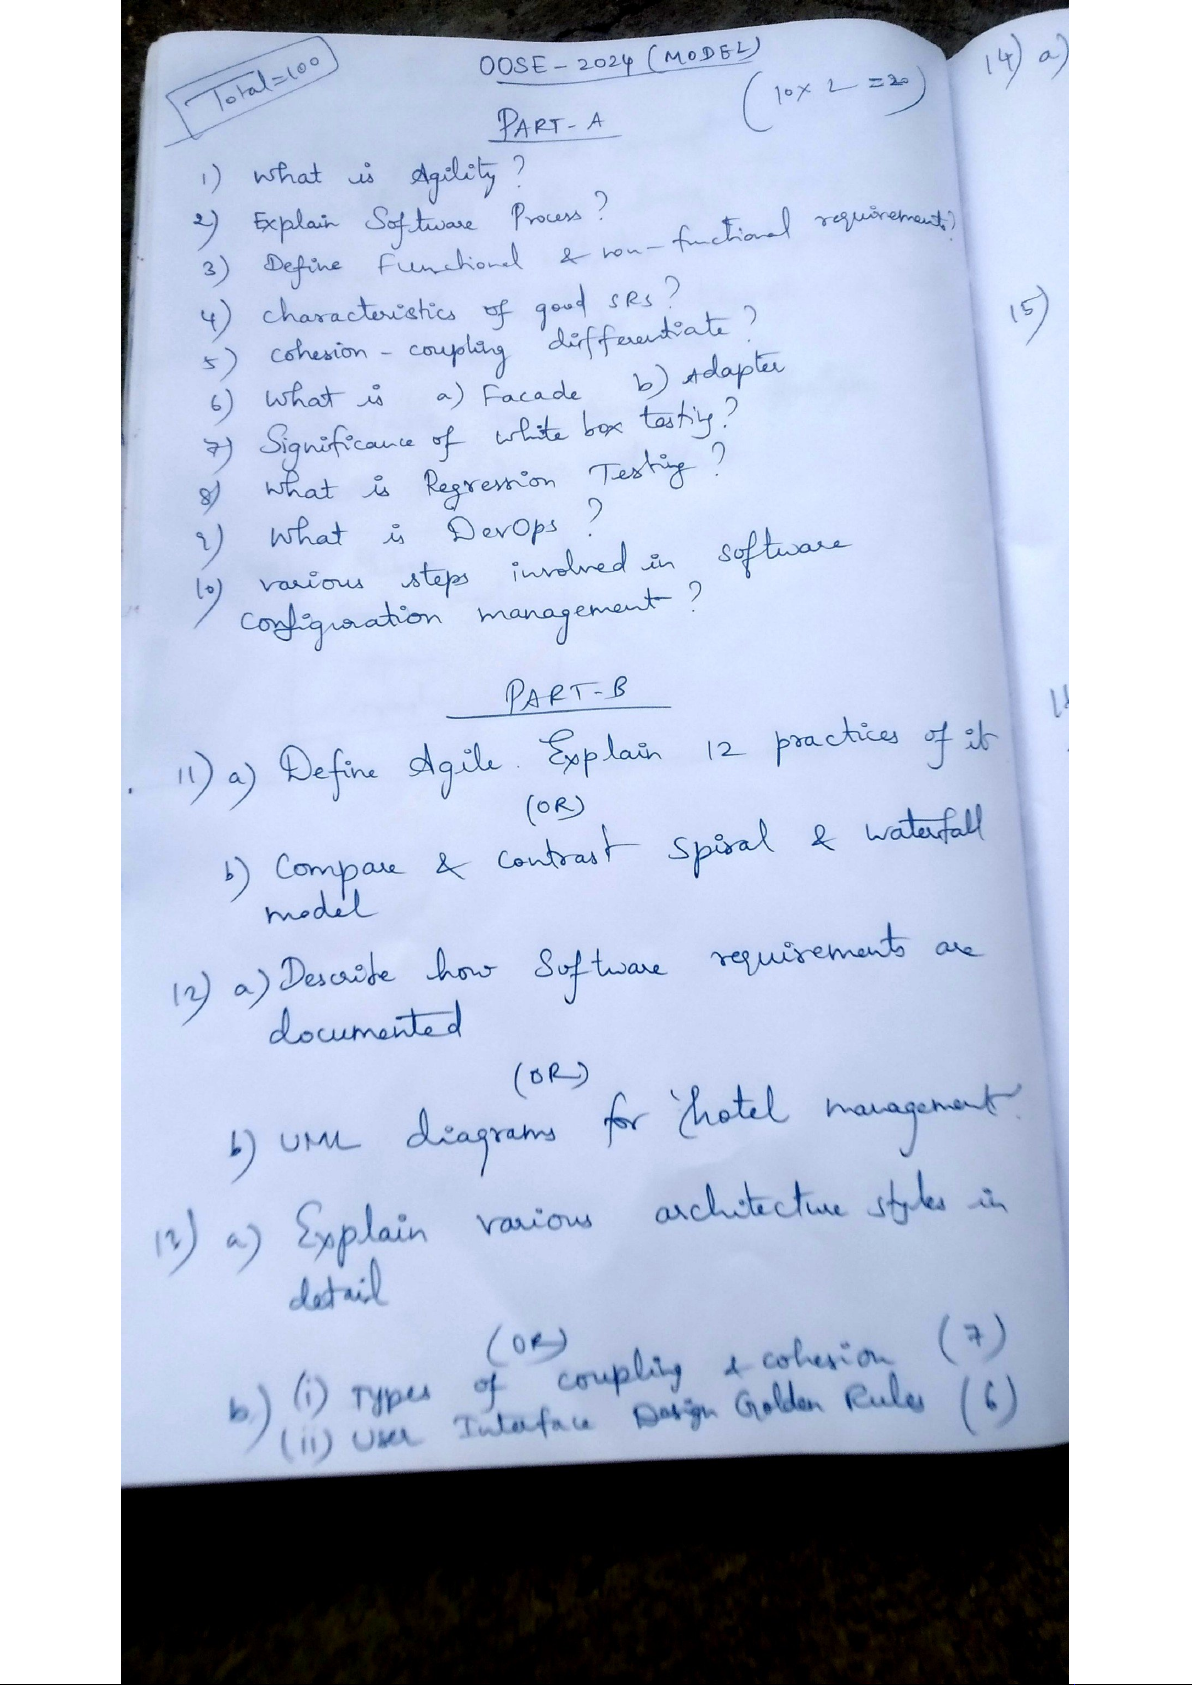 Total=100
OOSE - 2024 (MODEL)
(10 x 2 = 20)
PART-A
1) What is Agility?
2) Explain Software Process?
3) Define Functional & non-functional requirements?
4) characteristics of good SRS?
5) cohesion - coupling differentiate?
6) What is a) Facade b) Adapter
7) Significance of white box testing?
8) What is Regression Testing?
9) What is DevOps?
10) various steps involved in software
configuration management?
PART-B
11) a) Define Agile. Explain 12 practices of it
(OR)
b) Compare & contrast spiral & waterfall
model
12) a) Describe how Software requirements are
documented
(OR)
b) UML diagrams for hotel management.
13) a) Explain various architecture styles in
detail
(OR)
b) (i) Types of coupling & cohesion (7)
(ii) User Interface Design Golden Rules (6)
14) a)
15)